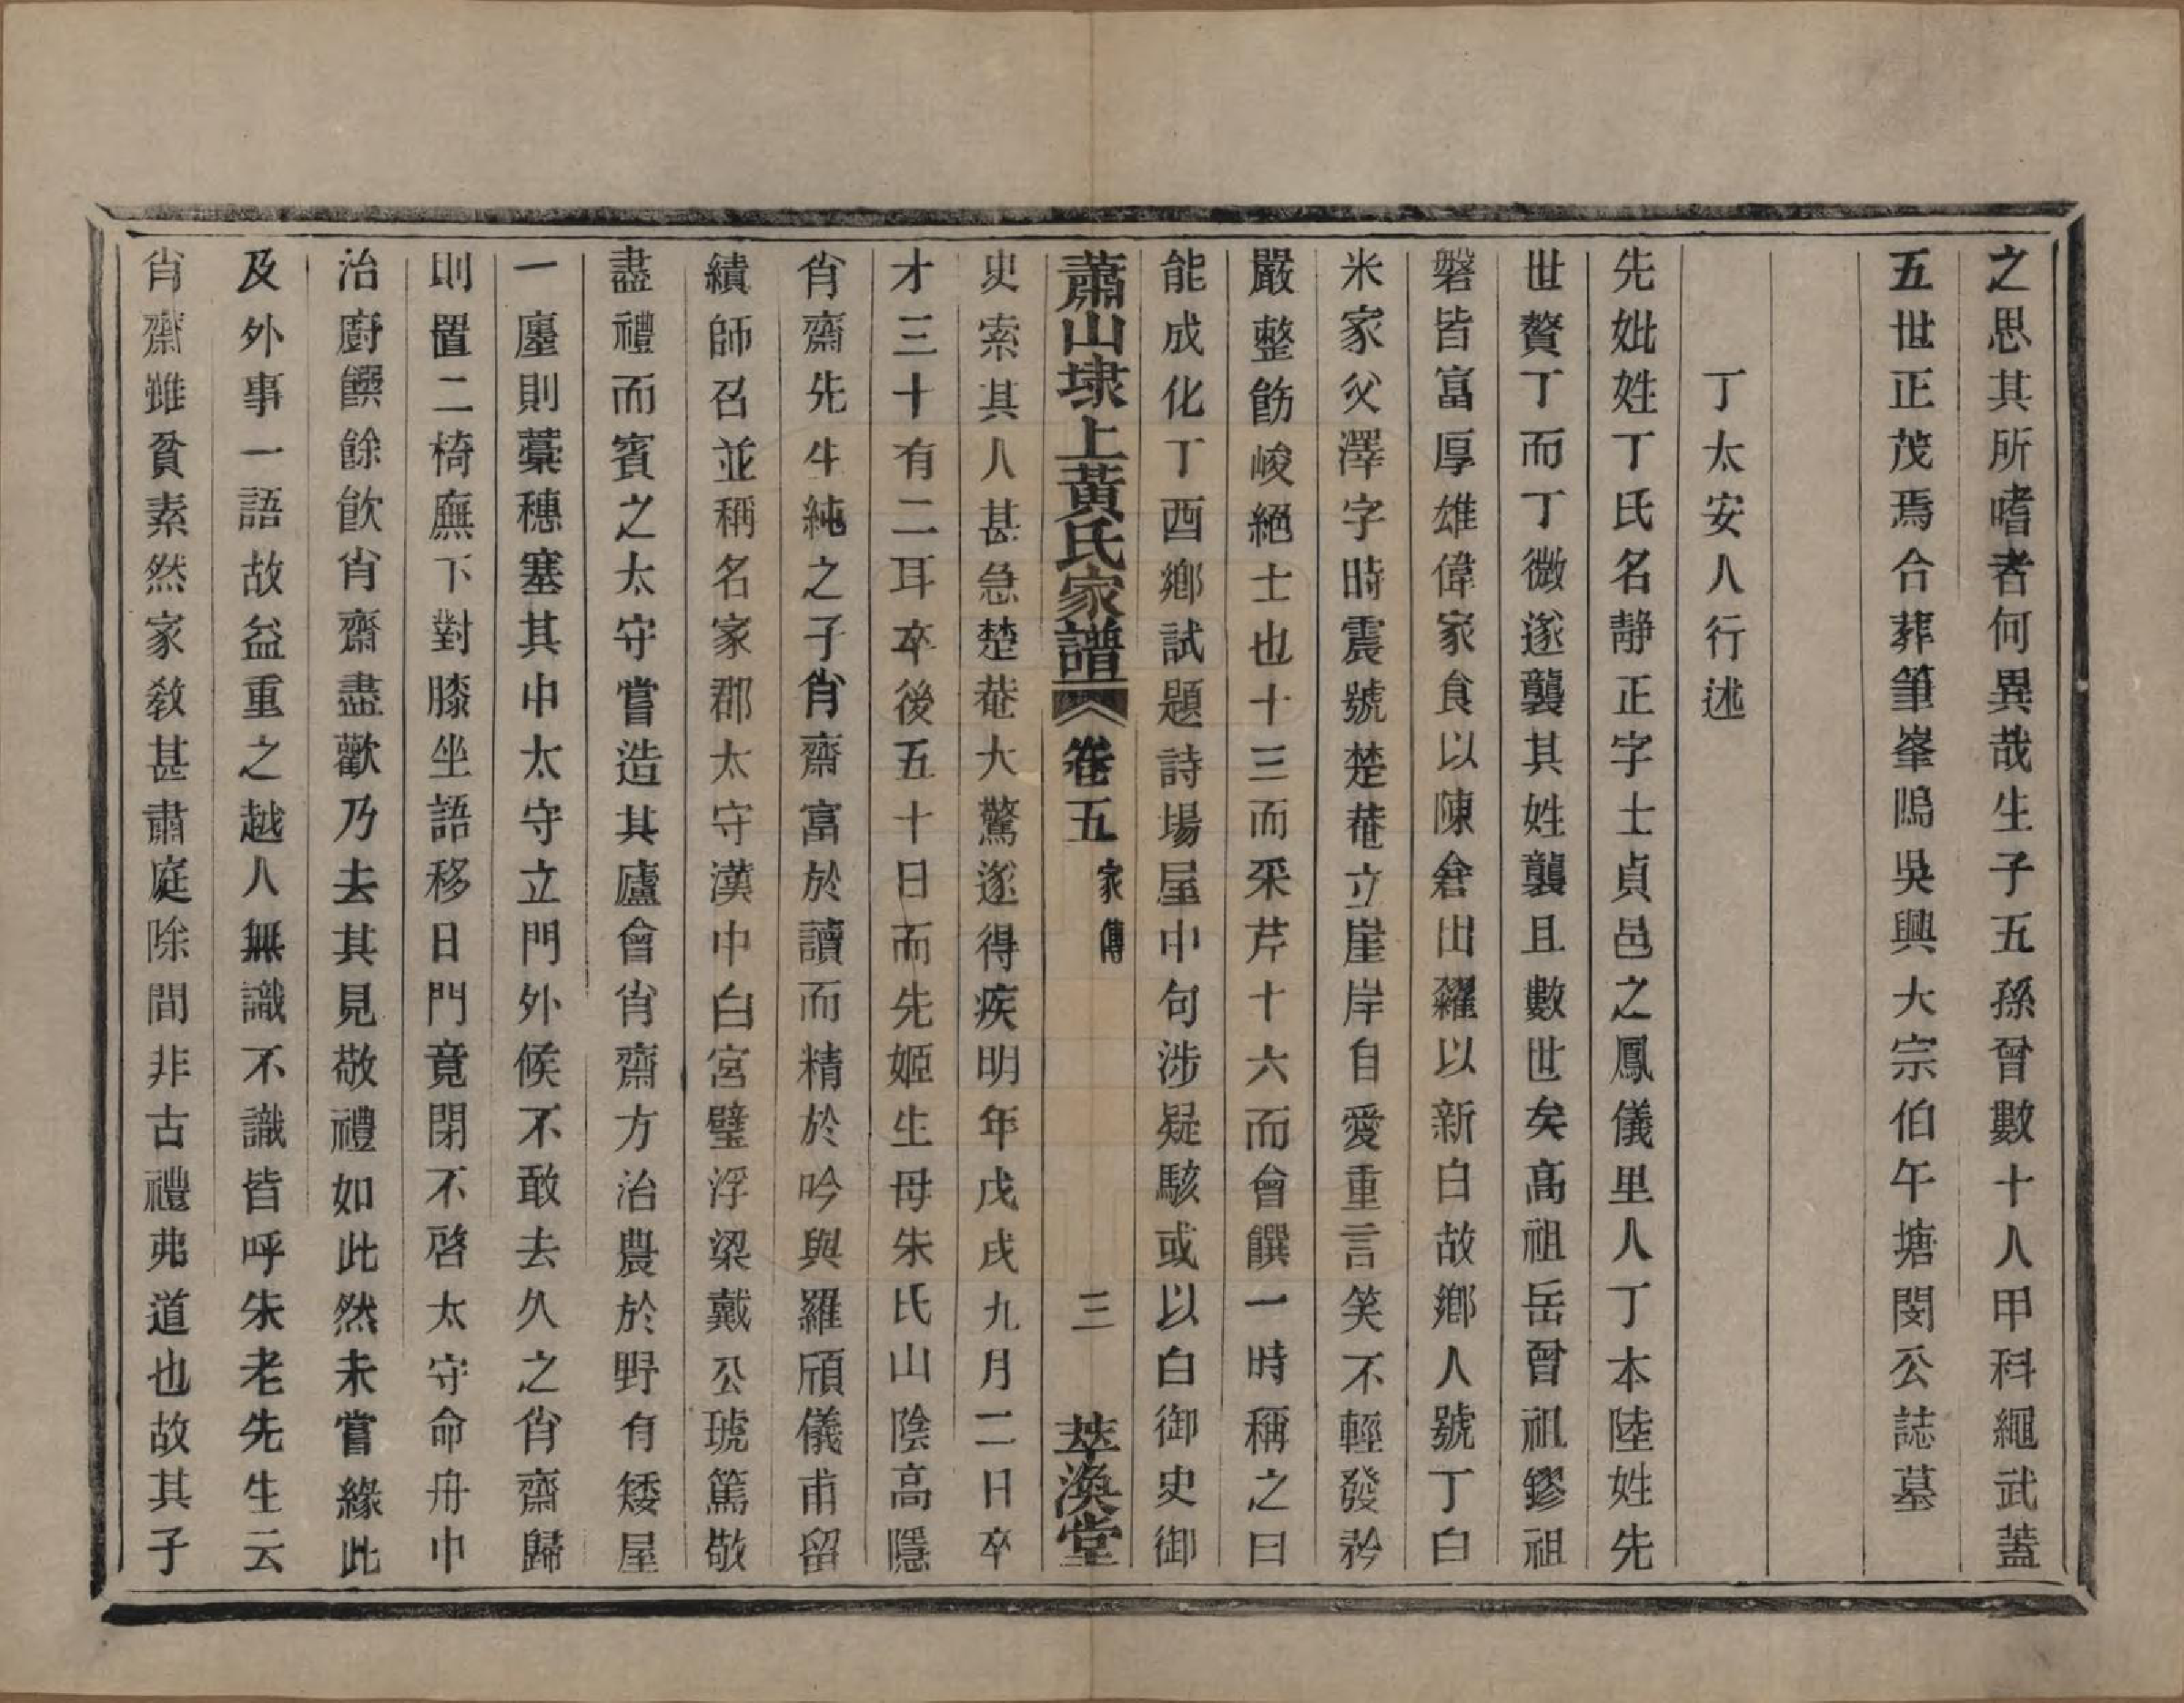 之思其所嗜者何異哉生子五孫曾數十人甲科繩武蓋
五世正茂焉合葬筆峯隖吳興大宗伯午塘閔公誌墓
丁太安人行述
先妣姓丁氏名靜正字士貞邑之鳳儀里人丁本陸姓先
世贅丁而丁微遂襲其姓襲且數世矣高祖岳曾祖鏐祖
磐皆富厚雄偉家食以陳倉出糴以新白故鄉人號丁白
米家父澤字時震號楚菴立崖岸自愛重言笑不輕發矜
嚴整飭峻絕士也十三而采芹十六而會饌一時稱之曰
能成化丁酉鄉試題詩場屋中句涉疑駭或以白御史御
蕭山埭上黃氏家譜 卷五 家傳 三 萃渙堂
史索其人甚急楚菴大驚遂得疾明年戊戌九月二日卒
才三十有二耳卒後五十日而先姬生母朱氏山陰高隱
肖齋先生純之子肖齋富於讀而精於吟與羅頎儀甫留
績師召並稱名家郡太守漢中白宮璧浮梁戴公琥篤敬
盡禮而賓之太守嘗造其廬會肖齋方治農於野有矮屋
一廛則藁穗塞其中太守立門外候不敢去久之肖齋歸
則置二椅廡下對膝坐語移日門竟閉不啓太守命舟中
治廚饌餘飲肖齋盡歡乃去其見敬禮如此然未嘗緣此
及外事一語故益重之越人無識不識皆呼朱老先生云
肖齋雖貧素然家敎甚肅庭除間非古禮弗道也故其子